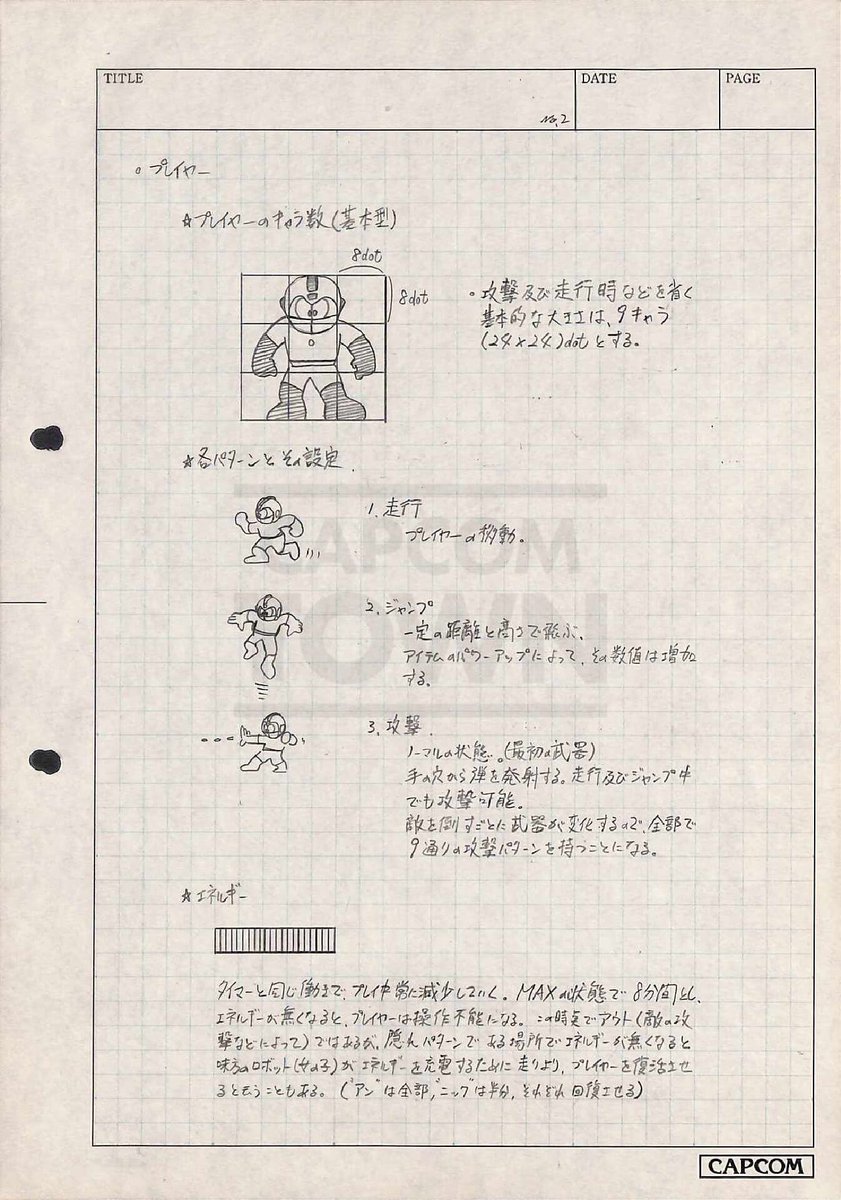 TITLE
DATE
PAGE
No.2
。プレイヤー
☆プレイヤーのキャラ数(基本型)
8dot
8dot
。攻撃及び走行時などを省く
基本的な大きさは、9キャラ
(24×24)dotとする。
☆各パターンとその設定.
CAPCOM
TOWN
1. 走行
プレイヤーの移動。
2. ジャンプ
一定の距離と高さで飛ぶ、
アイテムのパワーアップによって、その数値は増加
する。
3. 攻撃.
ノーマルの状態。(最初の武器)
手の穴から弾を発射する。走行及びジャンプ中
でも攻撃可能。
敵を倒すごとに武器が変化するので、全部で
9通りの攻撃パターンを持つことになる。
☆エネルギー
タイマーと同じ働きで、プレイ中常に減少していく。MAXの状態で8分間とし、
エネルギーが無くなると、プレイヤーは操作不能になる。この時点でアウト(敵の攻
撃などによって)ではあるが、隠れパターンである場所でエネルギーが無くなると
味方のロボット(女の子)がエネルギーを充電するために走りより、プレイヤーを復活させ
ると云うこともある。("アン"は全部,"ニップ"は半分,それぞれ回復させる)
CAPCOM